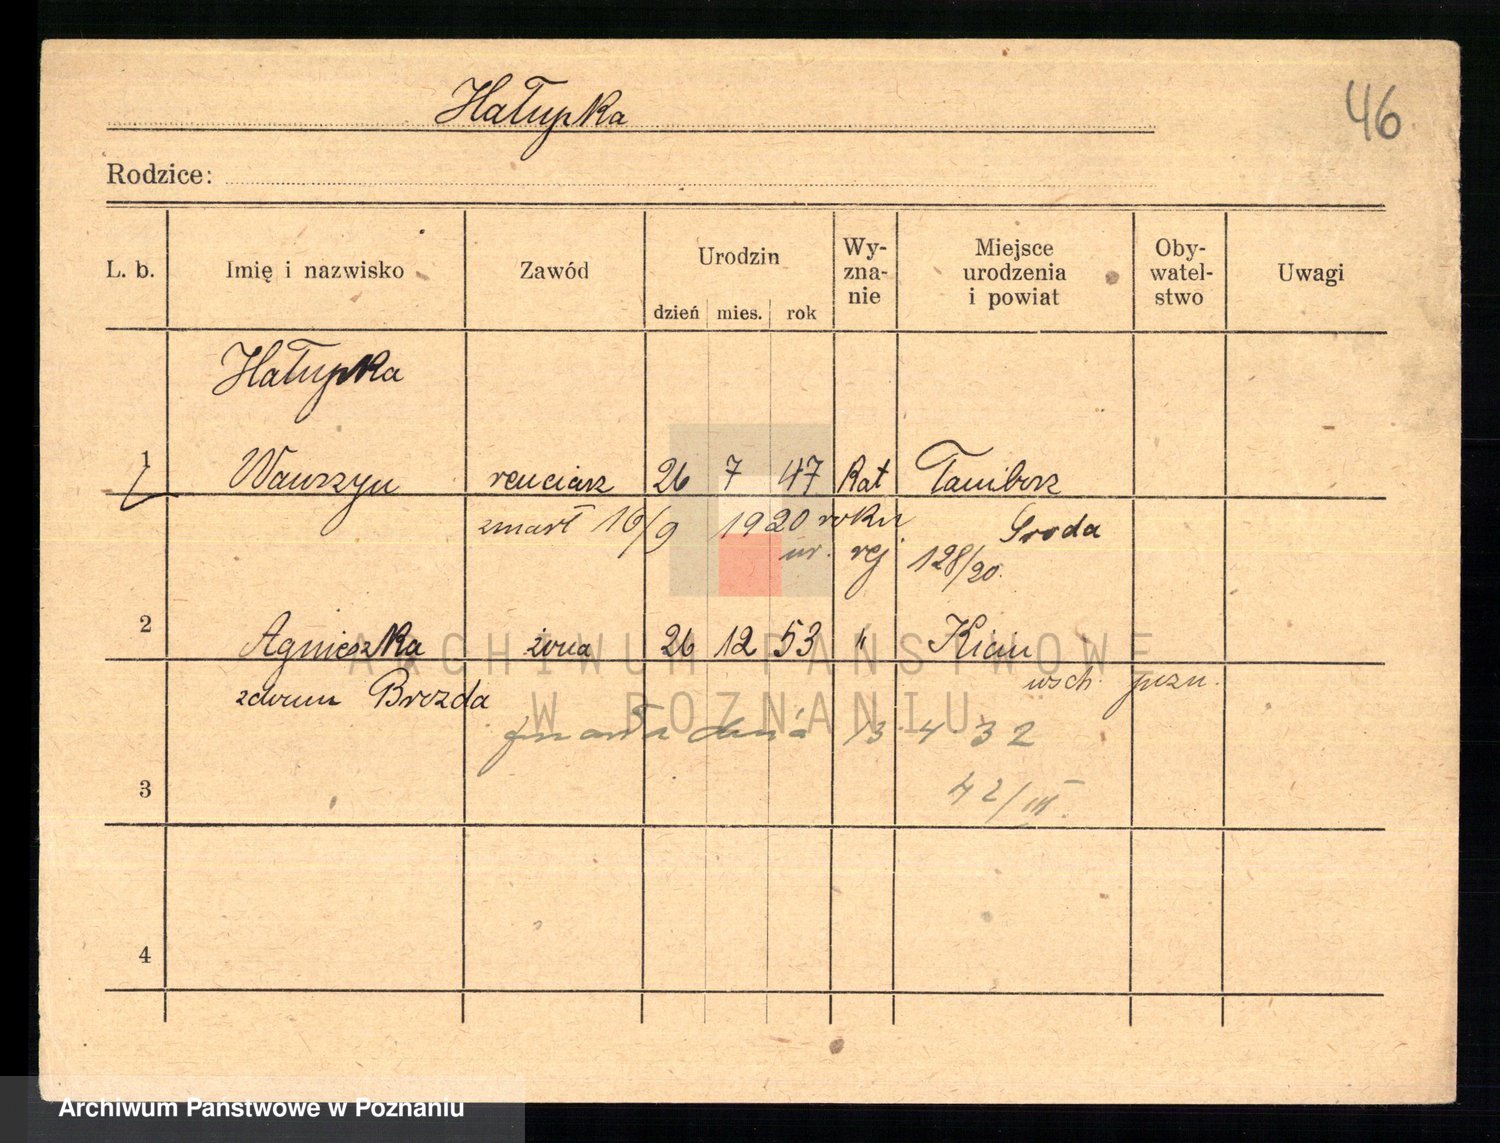 Hałupka
46
Rodzice:
L. b.
Imię i nazwisko
Zawód
Urodzin
dzień mies. rok
Wy-
zna-
nie
Miejsce
urodzenia
i powiat
Oby-
watel-
stwo
Uwagi
Hałupka
1 Wawrzyn renciarz 26 7 47 Kat Taniborz
zmarł 16/9 1920 roku Sroda
ur. rej 128/20.
2 Agnieszka żona 26 12 53 " Kicin
zdomu Brozda wsch. pozn.
zmarła dnia 13 4 32
3 42/III.
4
ARCHIWUM PAŃSTWOWE
W POZNANIU
Archiwum Państwowe w Poznaniu